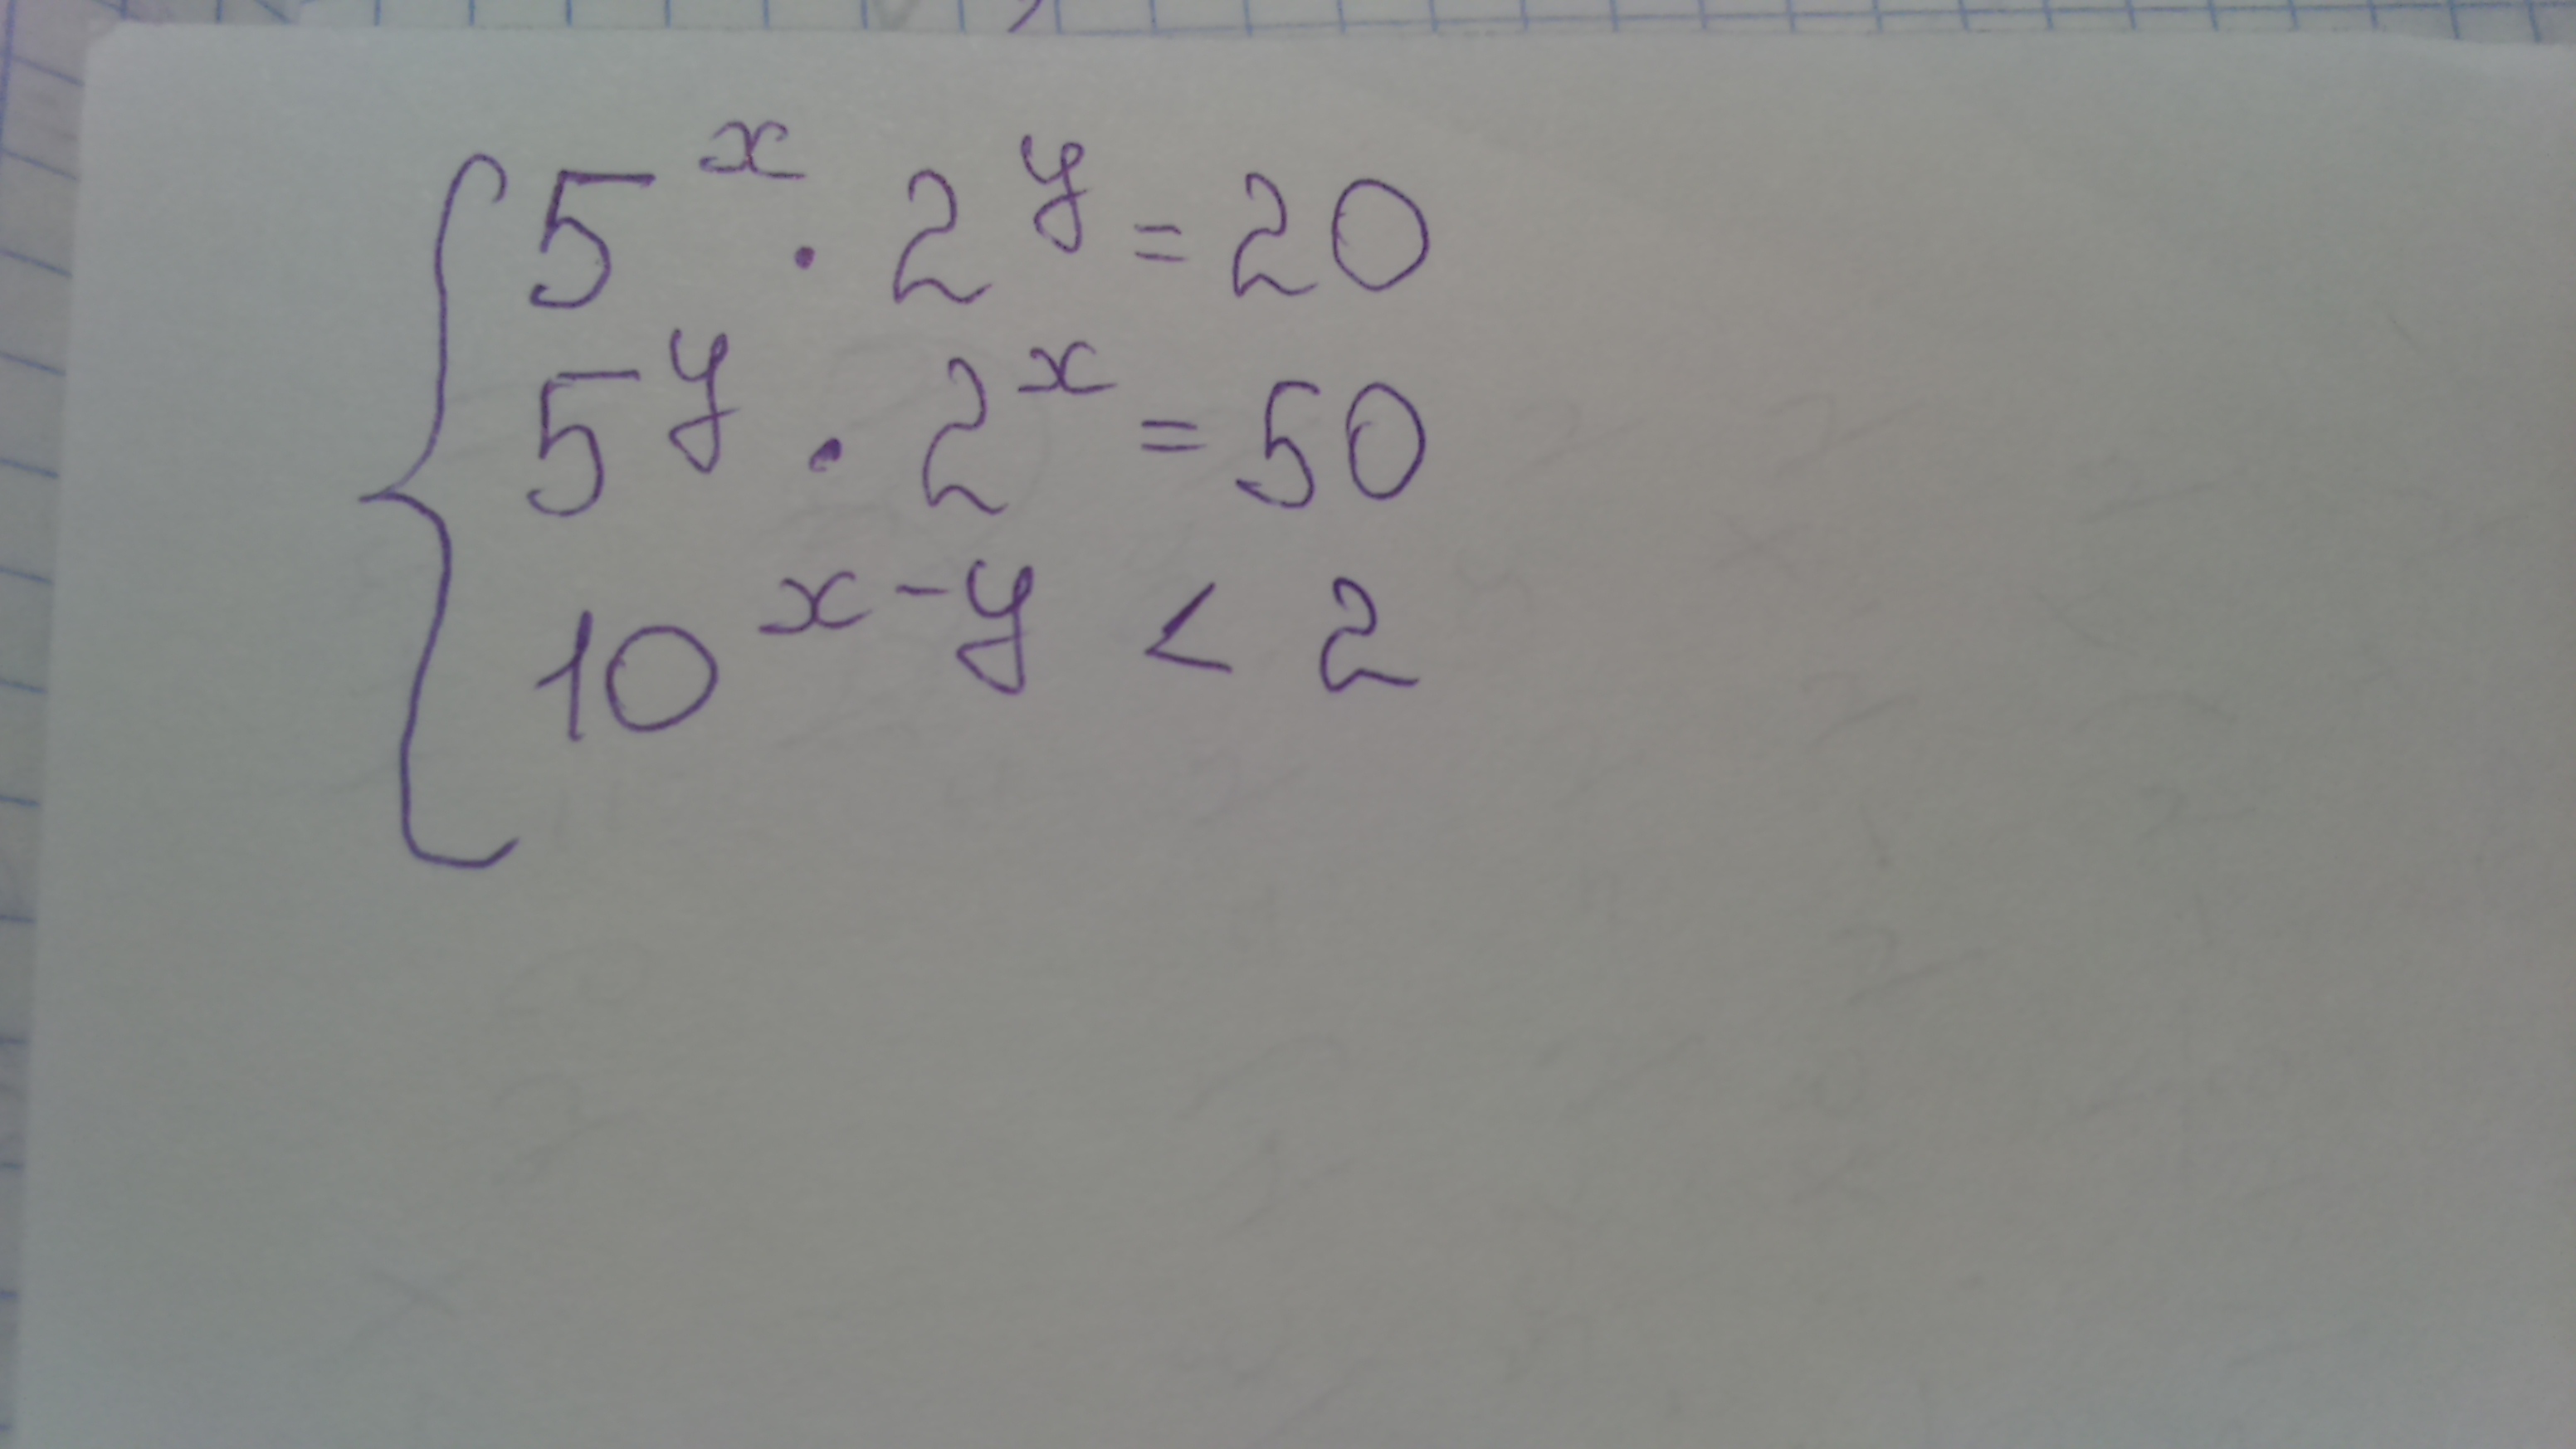 5^x · 2^y = 20
5^y · 2^x = 50
10^{x-y} < 2